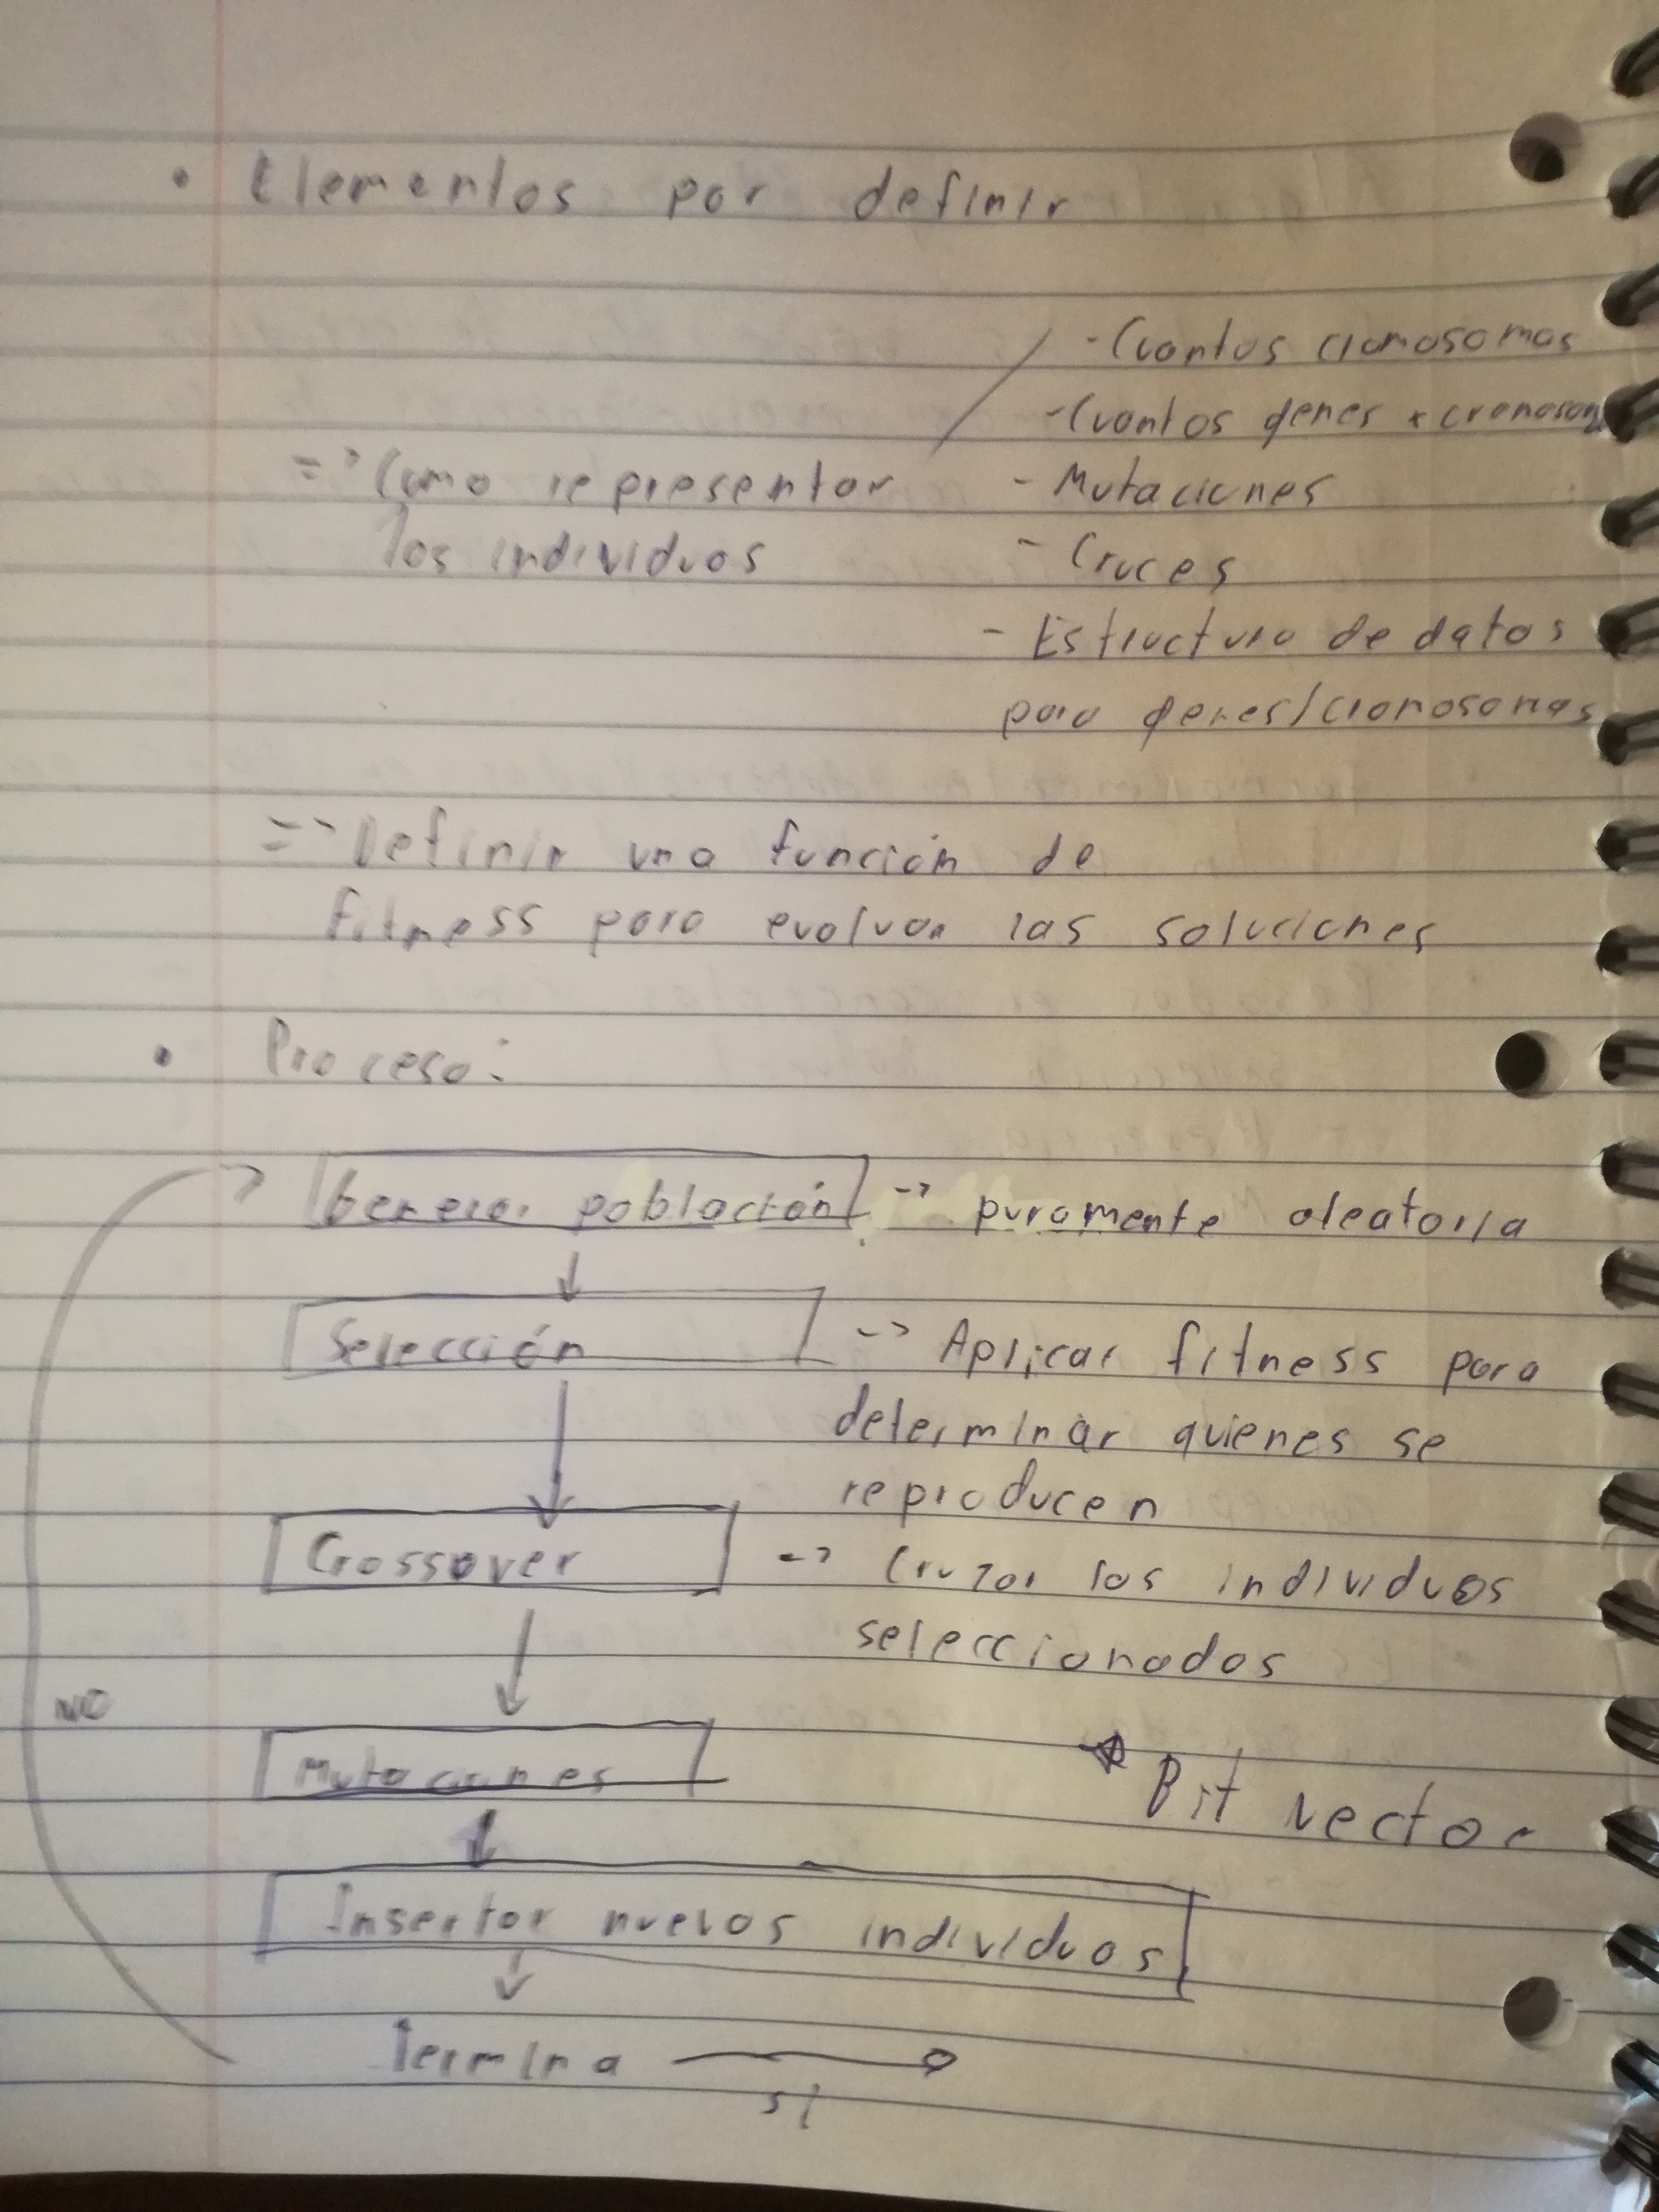 • Elementos por definir
- Cuantos cromosomas
- Cuantos genes x cromosoma
=> Como representar - Mutaciones
los individuos - Cruces
- Estructura de datos
para genes/cromosomas
=> Definir una función de
fitness para evaluar las soluciones
• Proceso:
Generar población -> puramente aleatoria
Selección -> Aplicar fitness para
determinar quienes se
reproducen
Crossover -> Cruzar los individuos
seleccionados
NO
Mutaciones
* Bit vector
Insertar nuevos individuos
Termina
si